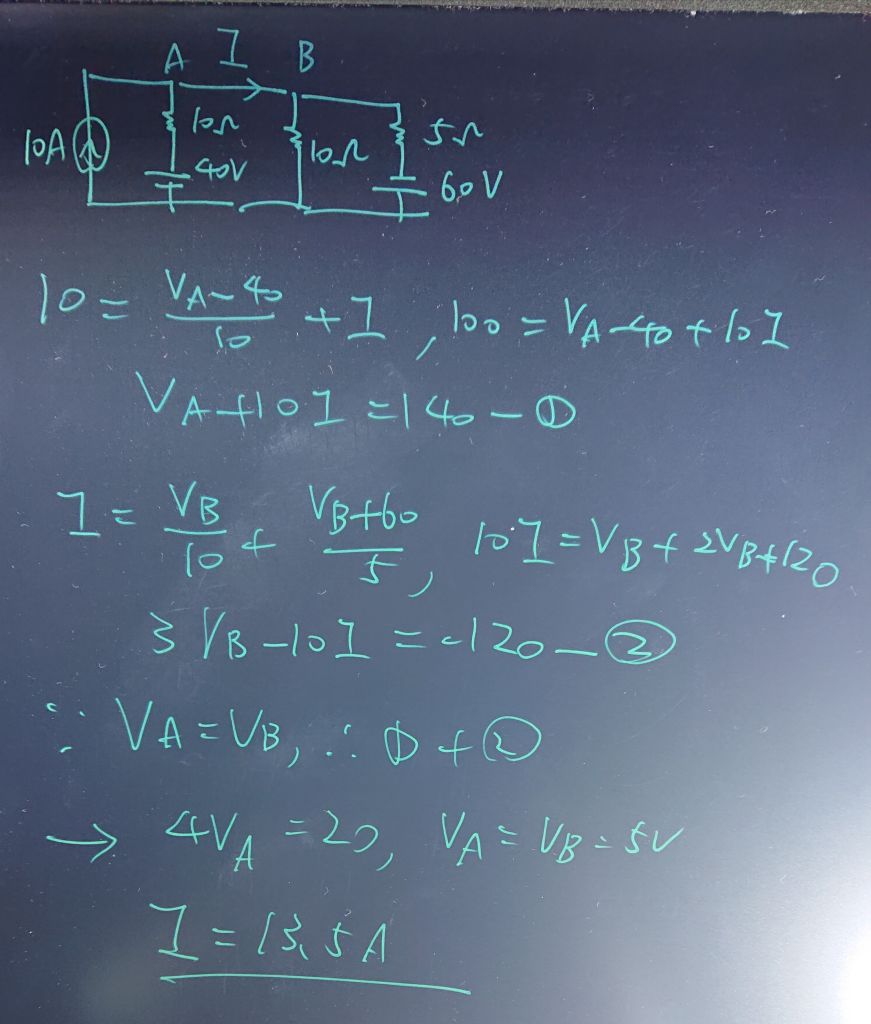 A I B
10A 10Ω 40V 10Ω 5Ω 60V
10 = (VA-40)/10 + I , 100 = VA-40+10I
VA+10I = 140 - ①
I = VB/10 + (VB+60)/5 , 10I = VB + 2VB+120
3VB-10I = -120 - ②
∵ VA = VB, ∴ ① + ②
→ 4VA = 20, VA = VB = 5V
I = 13.5A